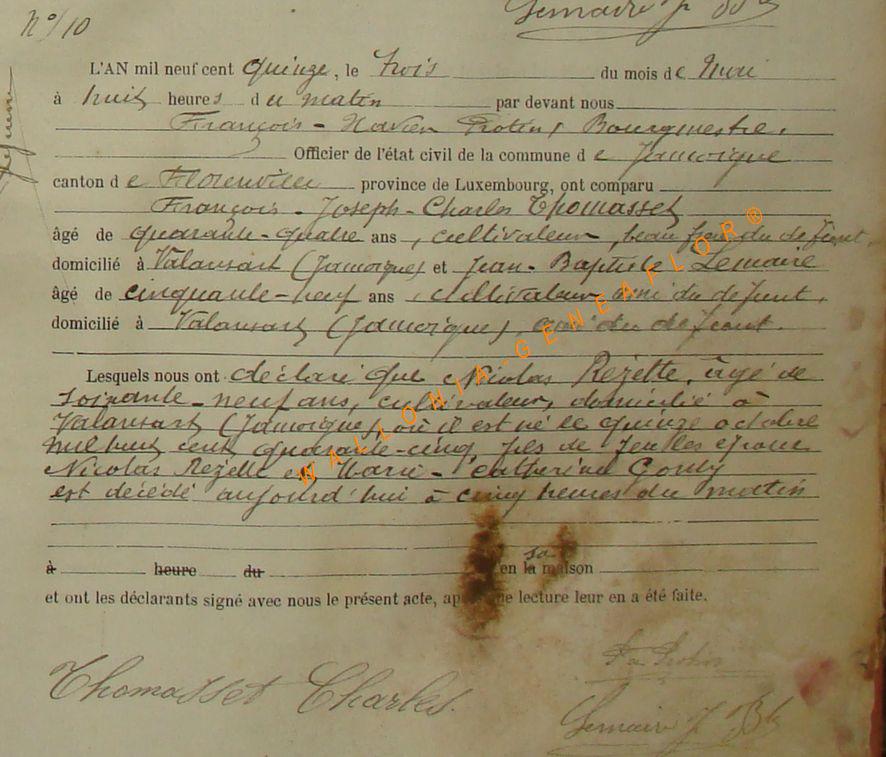 N° 10
Lemaire J Bte
L'AN mil neuf cent quinze, le Trois du mois de Mai
à huit heures du matin par devant nous
François-Xavier Protin, Bourgmestre,
Officier de l'état civil de la commune de Jamoigne
canton de Florenville province de Luxembourg, ont comparu
François-Joseph-Charles Thomasset
âgé de quarante-quatre ans, cultivateur, beau frère du défunt,
domicilié à Valansart (Jamoigne) et Jean-Baptiste Lemaire
âgé de cinquante-neuf ans, cultivateur, ami du défunt,
domicilié à Valansart (Jamoigne), ami du défunt.
Lesquels nous ont déclaré que Nicolas Rezette, âgé de
soixante-neuf ans, cultivateur, domicilié à
Valansart (Jamoigne), où il est né le quinze octobre
mil huit cent quarante-cinq, fils de feu les époux
Nicolas Rezette et Marie-Catherine
est décédé aujourd'hui à cinq heures du matin
à heure du en la sa maison
et ont les déclarants signé avec nous le présent acte, lecture leur en a été faite.
Protin
Thomasset Charles.
Lemaire J Bte
WALLONIA-GENEAFLOR®